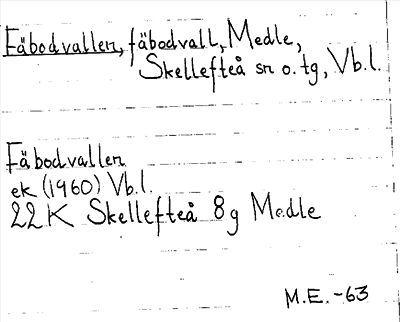 Fäbodvallen, fäbodvall, Medle,
Skellefteå sn o. tg, Vb.l.
Fäbodvallen
ek (1960) Vb.l.
22 K Skellefteå 8g Medle
M.E. -63